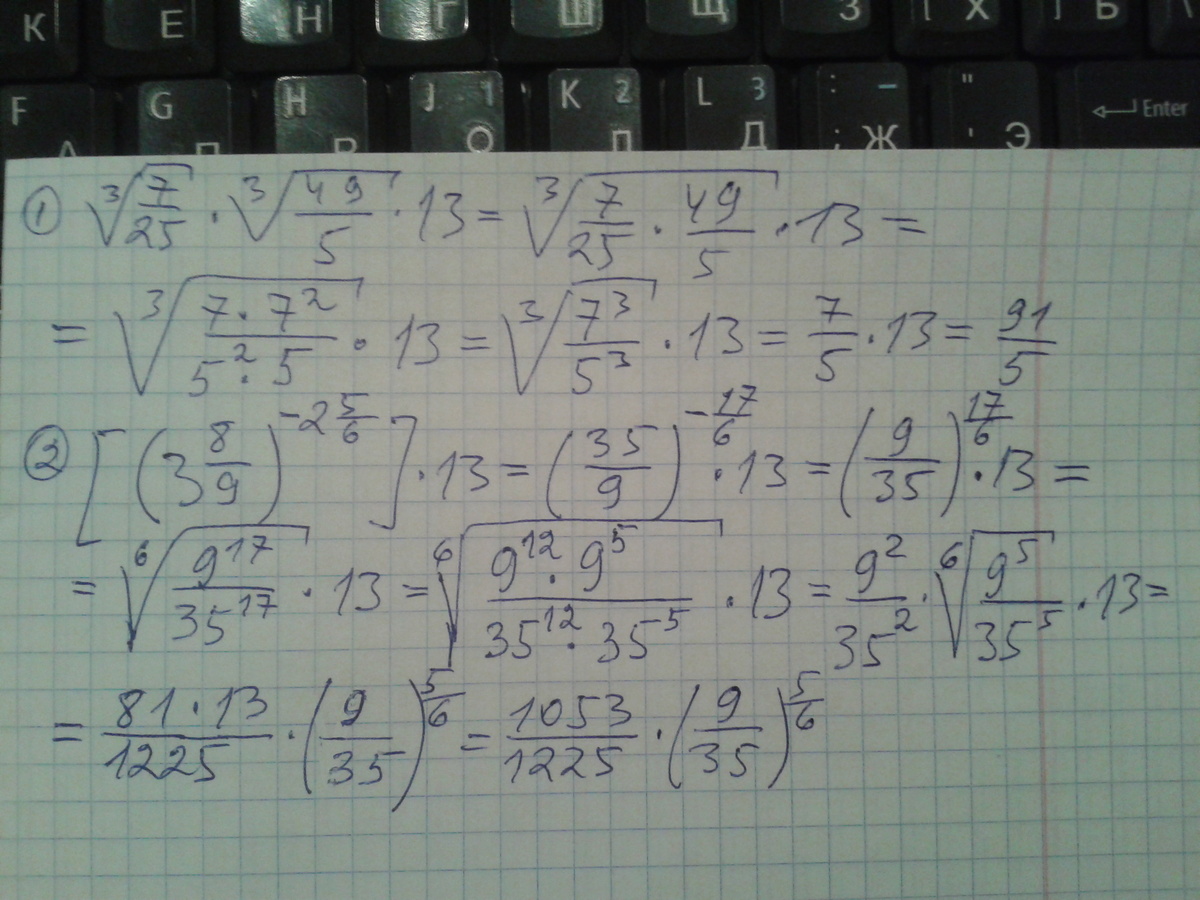 К Е Н Г Ш Щ З [ Х ] Ъ \
F А G П H Р J 1 О K 2 Л L 3 Д : – ; Ж " ' Э Enter
① ∛(7/25) · ∛(49/5) · 13 = ∛(7/25 · 49/5) · 13 =
= ∛((7·7²)/(5²·5)) · 13 = ∛(7³/5³) · 13 = 7/5 · 13 = 91/5
② [(3 8/9)^(-2 5/6)] · 13 = (35/9)^(-17/6) · 13 = (9/35)^(17/6) · 13 =
= ⁶√(9¹⁷/35¹⁷) · 13 = ⁶√((9¹²·9⁵)/(35¹²·35⁵)) · 13 = 9²/35² · ⁶√(9⁵/35⁵) · 13 =
= (81·13)/1225 · (9/35)^(5/6) = 1053/1225 · (9/35)^(5/6)